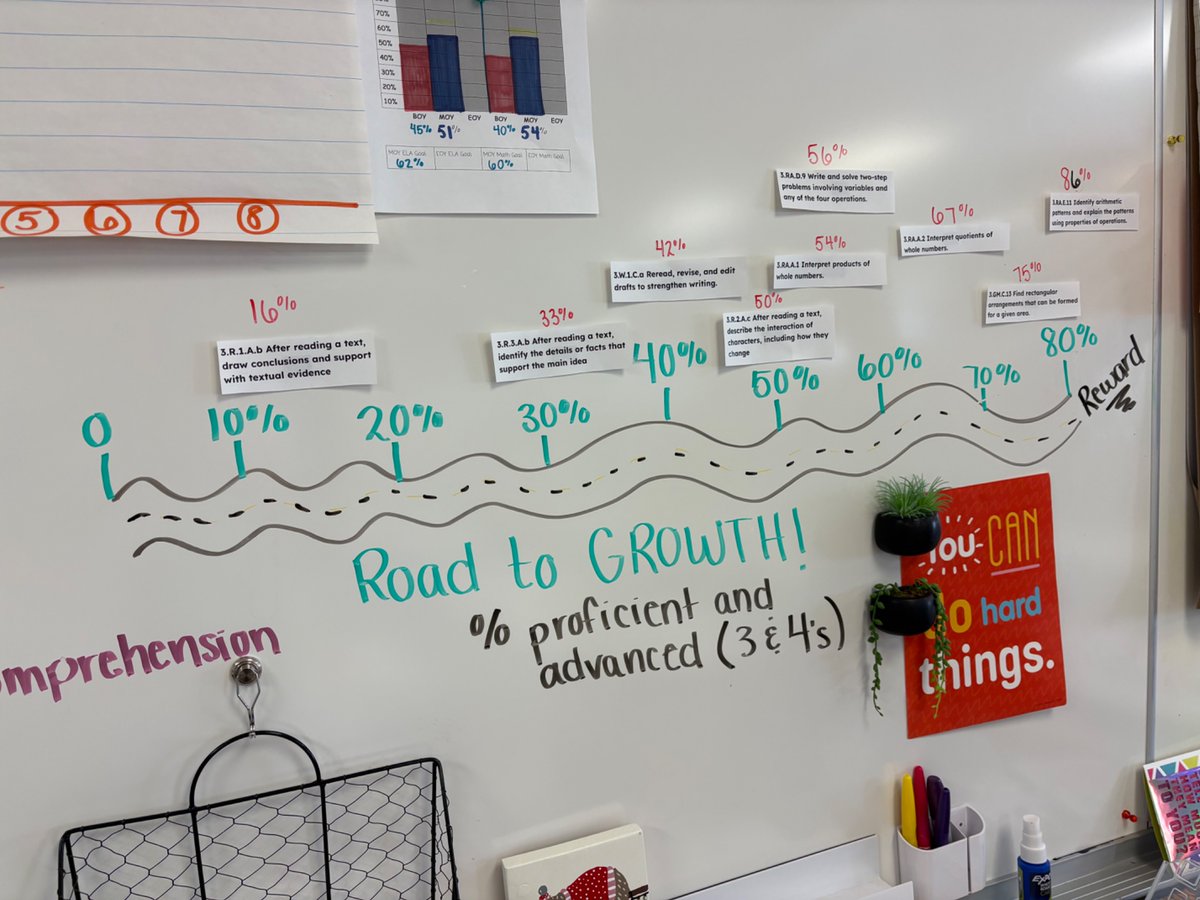 70%
60%
50%
40%
30%
20%
10%
BOY MOY EOY BOY MOY EOY
45% 51% 40% 54%
MOY ELA Goal: EOY ELA Goal: MOY Math Goal: EOY Math Goal:
62% 60%
5 6 7 8
16%
3.R.1.A.b After reading a text,
draw conclusions and support
with textual evidence
33%
3.R.3.A.b After reading a text,
identify the details or facts that
support the main idea
42%
3.W.1.C.a Reread, revise, and edit
drafts to strengthen writing.
50%
3.R.2.A.c After reading a text,
describe the interaction of
characters, including how they
change
54%
3.RA.A.1 Interpret products of
whole numbers.
56%
3.RA.D.9 Write and solve two-step
problems involving variables and
any of the four operations.
67%
3.RA.A.2 Interpret quotients of
whole numbers.
75%
3.GM.C.13 Find rectangular
arrangements that can be formed
for a given area.
86%
3.RA.E.11 Identify arithmetic
patterns and explain the patterns
using properties of operations.
0 10% 20% 30% 40% 50% 60% 70% 80%
Reward
Road to GROWTH!
% proficient and
advanced (3 & 4's)
omprehension
YOU CAN
DO hard
things.
EXPO